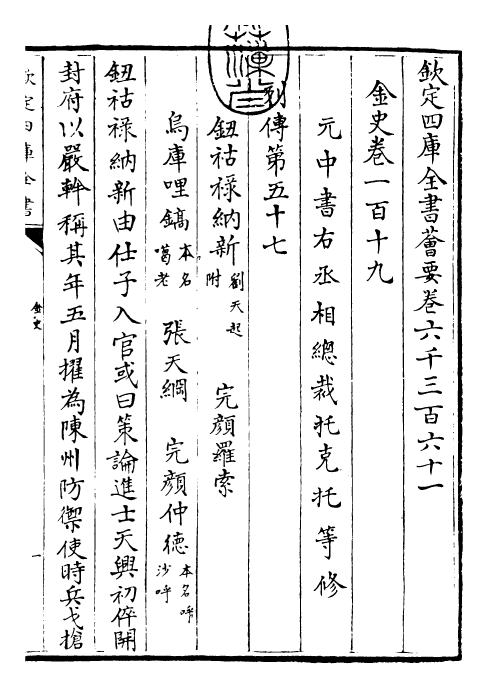 欽定四庫全書薈要卷六千三百六十一
金史卷一百十九
元中書右丞相總裁托克托等修
列傳第五十七
鈕祜祿納新劉天起附　完顏羅索
烏庫哩鎬本名噶老　張天綱　完顏仲德本名呼沙呼
鈕祜祿納新由任子入官或曰策論進士天興初倅開
封府以嚴幹稱其年五月擢為陳州防禦使時兵戈搶
欽定四庫全書
金史
一